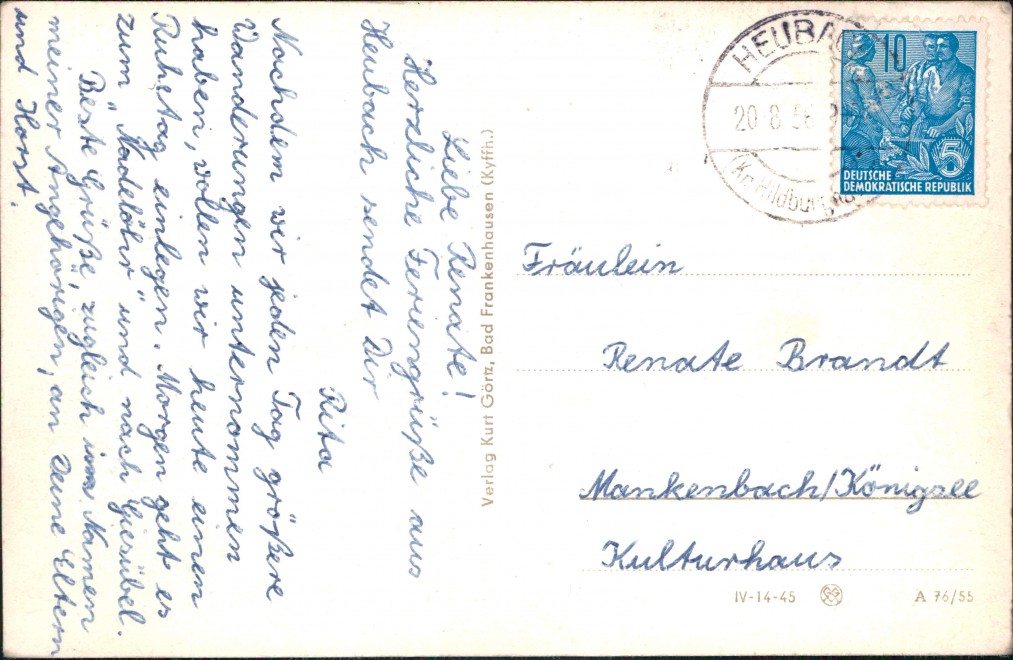 Liebe Renate!
Herzliche Feriengrüße aus
Heubach sendet Dir
Rita
Nachdem wir jeden Tag größere
Wanderungen unternommen
haben, wollen wir heute einen
Ruhetag einlegen. Morgen geht es
zum "Nadelöhr" und nach Giesübel.
Beste Grüße, zugleich im Namen
meiner Angehörigen, an Deine Eltern
und Horst.
Verlag Kurt Görz, Bad Frankenhausen (Kyffh.)
HEUBACH
20.8.56
(Kr. Hildburgh
10
5
DEUTSCHE
DEMOKRATISCHE REPUBLIK
Fräulein
Renate Brandt
Mankenbach/Königsee
Kulturhaus
IV-14-45
A 76/55